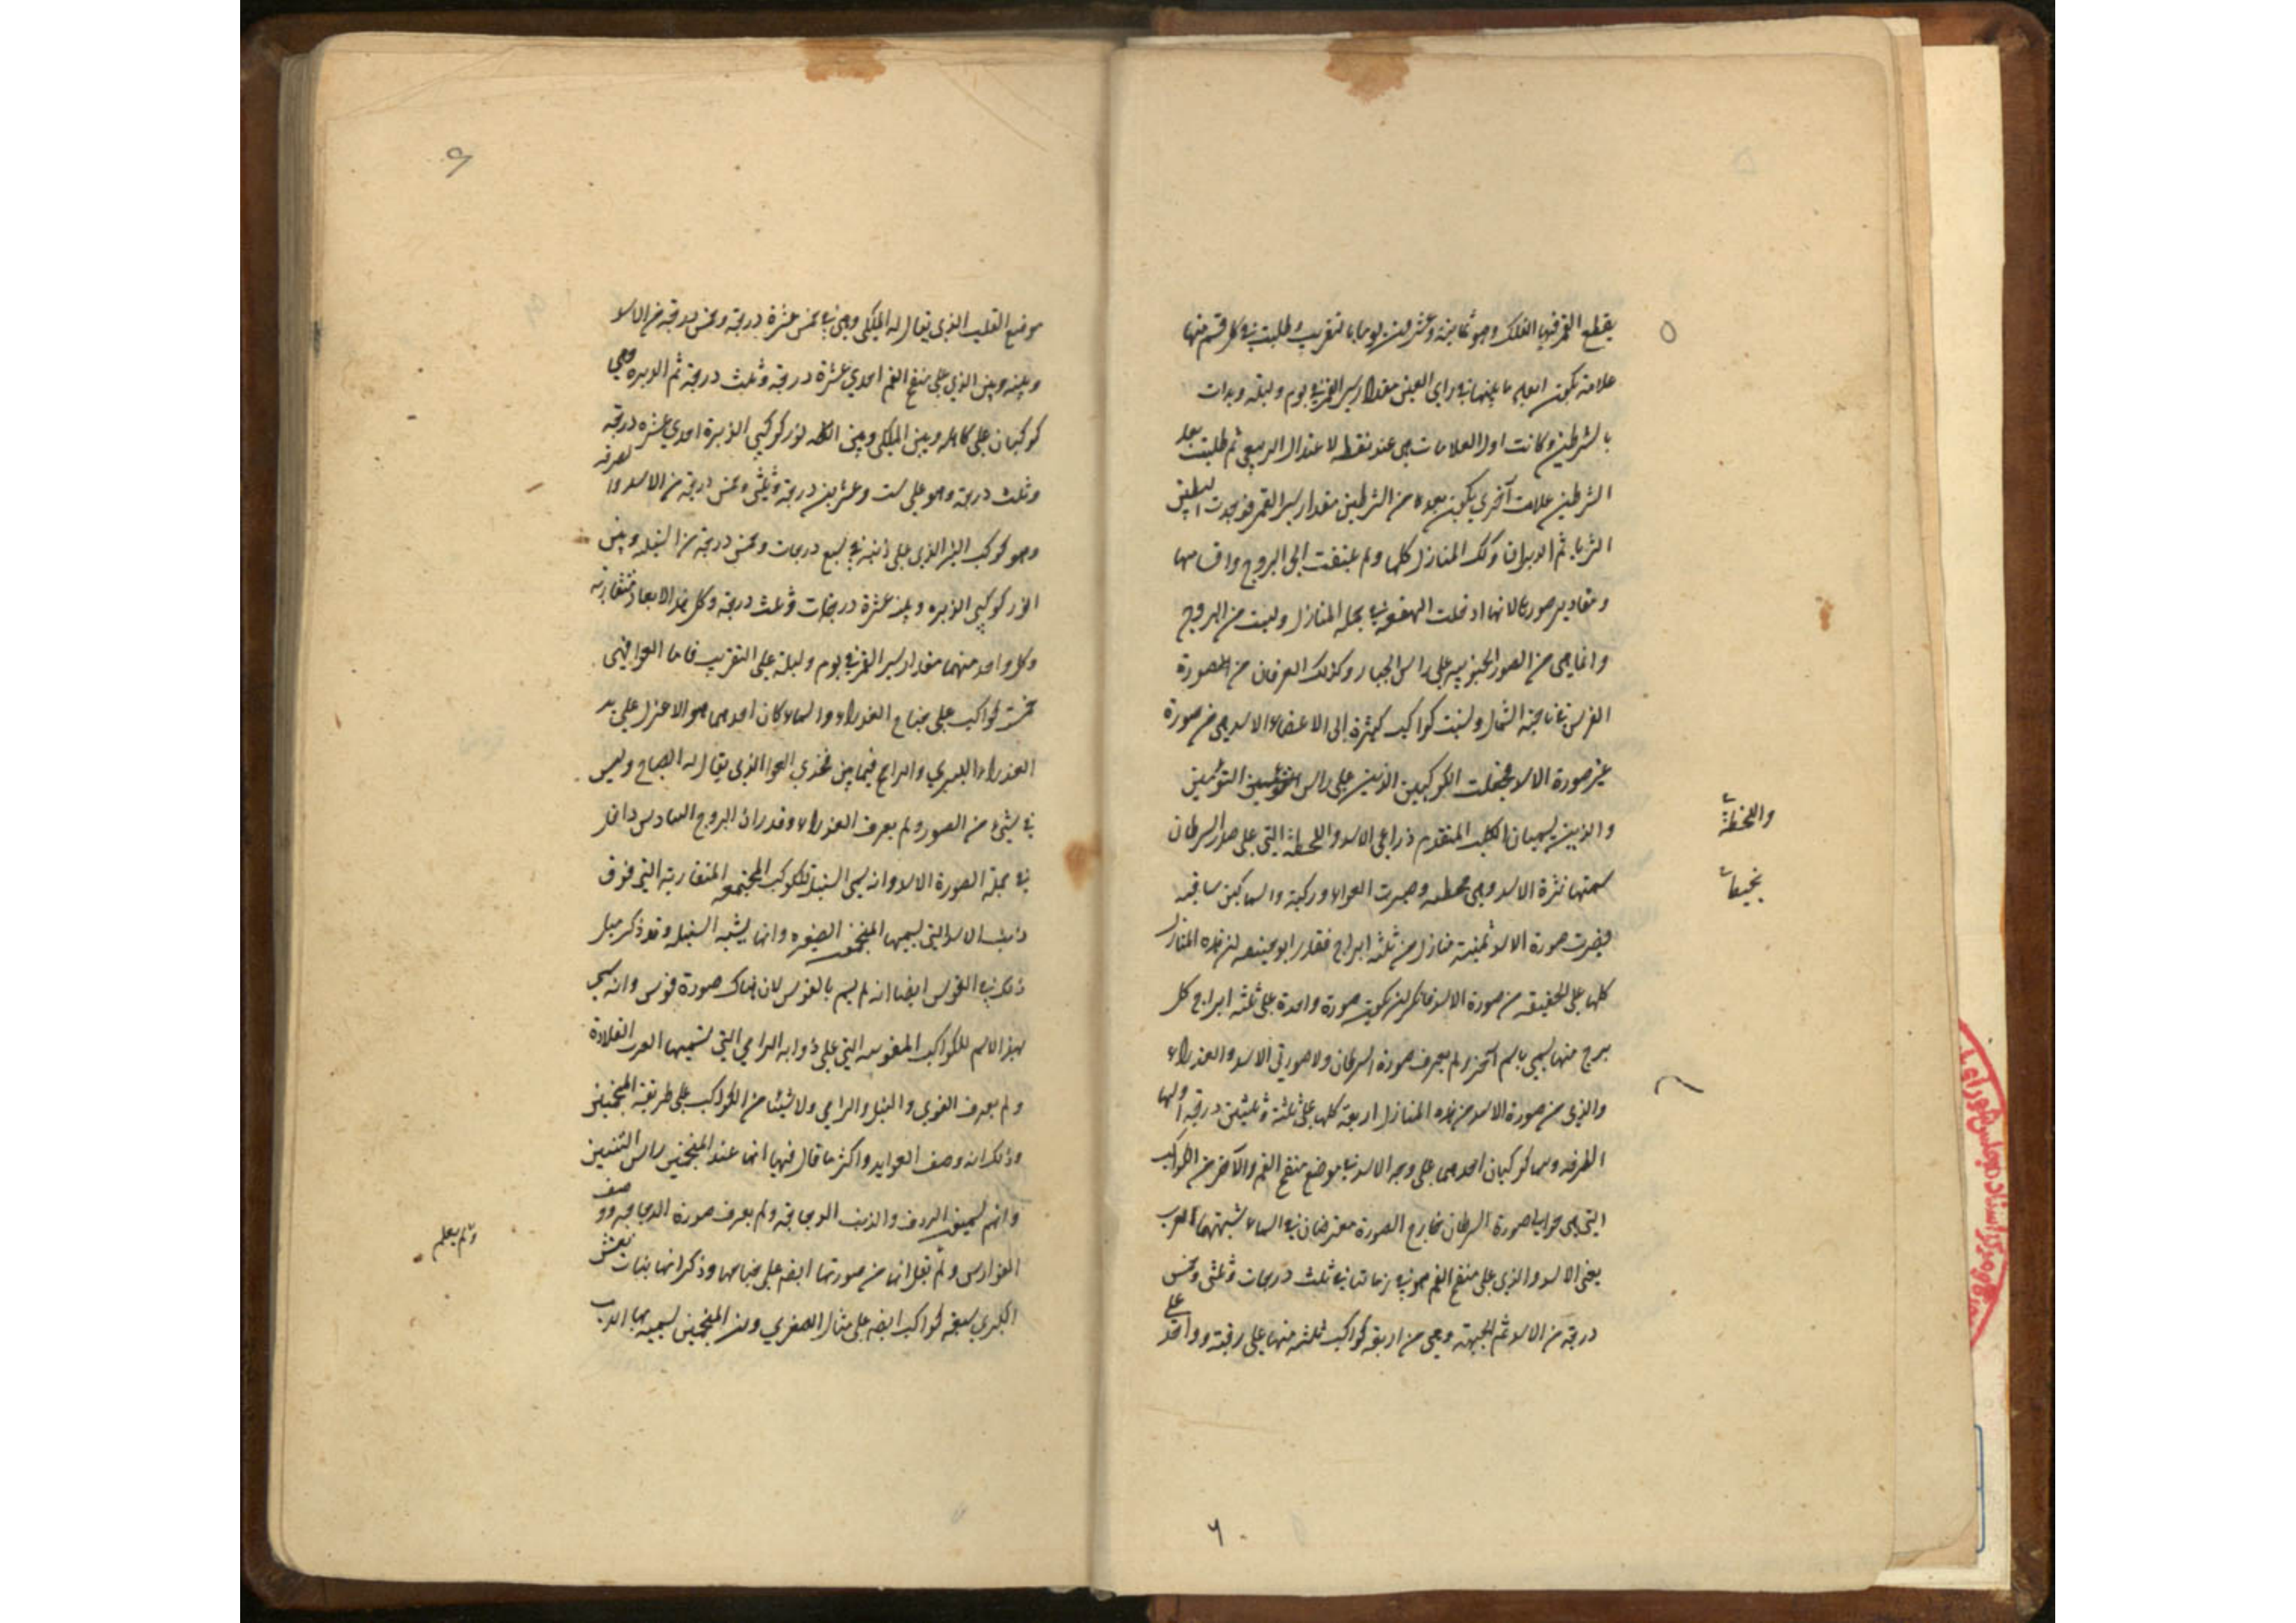 يقطع القمر فيها الفلك وهو ثمانية وعشرين يوما بالتقريب وطلبت في كل قسم منها
علامة يكون ابعاد ما بينها في راي العين مقدار سير القمر في يوم وليلة وبدات
بالشرطين وكانت اول العلامات هي عند نقطه الاعتدال الربيعي ثم طلبت بعد
الشرطين علامت آخري يكون بعده من الشرطين مقدار سير القمر فوجدت البطين
الثريا ثم الدبران وكك المنازل كلها ولم يلتفت الى البروج واقسامها
ومقادير صورها لانها ادخلت الهقعه في جملة المنازل وليست من البروج
وانما هي من الصور الجنوبيه على راس الجبار وكذلك الفرغان من الصورة
الفرس في ناحية الشمال ونسبت كواكب كثيرة الى الاعضاء الاسد هي من صورة
غير صورة الاسد فجعلت الكوكبين الذين على راس التوئمين
والذين يسميان الكلب المتقدم ذراعى الاسد واللطخة التي على صدر السرطان
سمتها نثرة الاسد وهي محطه وصيرت العواء وركيه والسماكين ساقيه
فصرت صورة الاسد ثمنية منازل من ثلثة ابراج فقدر ابو حنيفه ان هذه المنازل
كلها على الحقيقه من صورة الاسد فانكر ان يكون صورة واحدة على ثلثه ابراج كل
برج منها يسمي باسم آخر ولم يعرف صورة السرطان ولا صورتي الاسد والعذراء
والذى من صورة الاسد من هذه المنازل اربعة كلها على ثلثة وثلثين درجة اولها
الطرفه وهما كوكبان احدهما على وجه الاسد في موضع منفخ الفم والآخر من الكواكب
التي هي حوالى صورة السرطان خارج الصورة معترضان في السماء شبهتهما العرب
بعنى الاسد والذى على منفخ الفم هو في زماننا في ثلث درجات وثلثى وخمس
درجة من الاسد ثم الجبهة وهى من اربعة كواكب ثلثه منها على رقبة وواحد على
واللخطة
نحيفا
٦
موضع القلب الذى يقال له الملكى وهى في خمس عشرة درجة وخمس درجة من الاسد
وبينه وبين الذي على منفخ الفم احدي عشرة درجة وثلث درجة ثم الزبره وهي
كوكبان على كاهله وبين الملكى وبين انور كوكبي الزبرة احدي عشره درجة
وثلث درجة وهو على ست وعشرين درجة وثلثى وخمس درجة من الاسد والصرفه
وهو كوكب النير الذى على ذنبه في سبع درجات وخمس درجة من السنبله وبين
انور كوكبى الزبره وبينه عشرة درجات وثلث درجة وكل هذه الابعاد متقاربه
وكل واحد منهما مقدار سير القمر في يوم وليلة على التقريب فاما العوا فهى
خمسة كواكب على جناح العذراء والسماكان احدهما هو الاعزل على يد
العذراء اليسري والرامح فيما بين فخذي العوا الذى يقال له الصياح وليس
في شىء من الصور ولم يعرف العذراء وقدر ان البروج السادس داخل
في جملة الصورة الاسد وانه سمى السنبلة للكواكب المجتمعه المتقاربة التى فوق
ذنب الاسد التي يسميها المنجمون الضفيره وانها يشبه السنبله وقد ذكر مثل
ذلك في القوس ايضا انه لم يسم بالقوس لان هناك صورة قوس وانه سمى
بهذا الاسم للكواكب المقوسه التي على ذوابة الرامي التي تسميها العرب القلادة
ولم يعرف القوس والنبل والرامي ولا شيئا من الكواكب على طريقة المنجمين
وذلك انه وصف العوايد واكثر ما قال فيها انها عند المنجمين راس التنين
وانهم يسمون الردف والذنب الدجاجة ولم يعرف صورة الدجاجه ووصف
الفوارس ولم يقل انها من صورتها ايضه على جناحها وذكر انها بنات نعش
الكبرى سبعة كواكب ايضه على مثال الصغري وان المنجمين يسمونها الدب
ولم يعلم